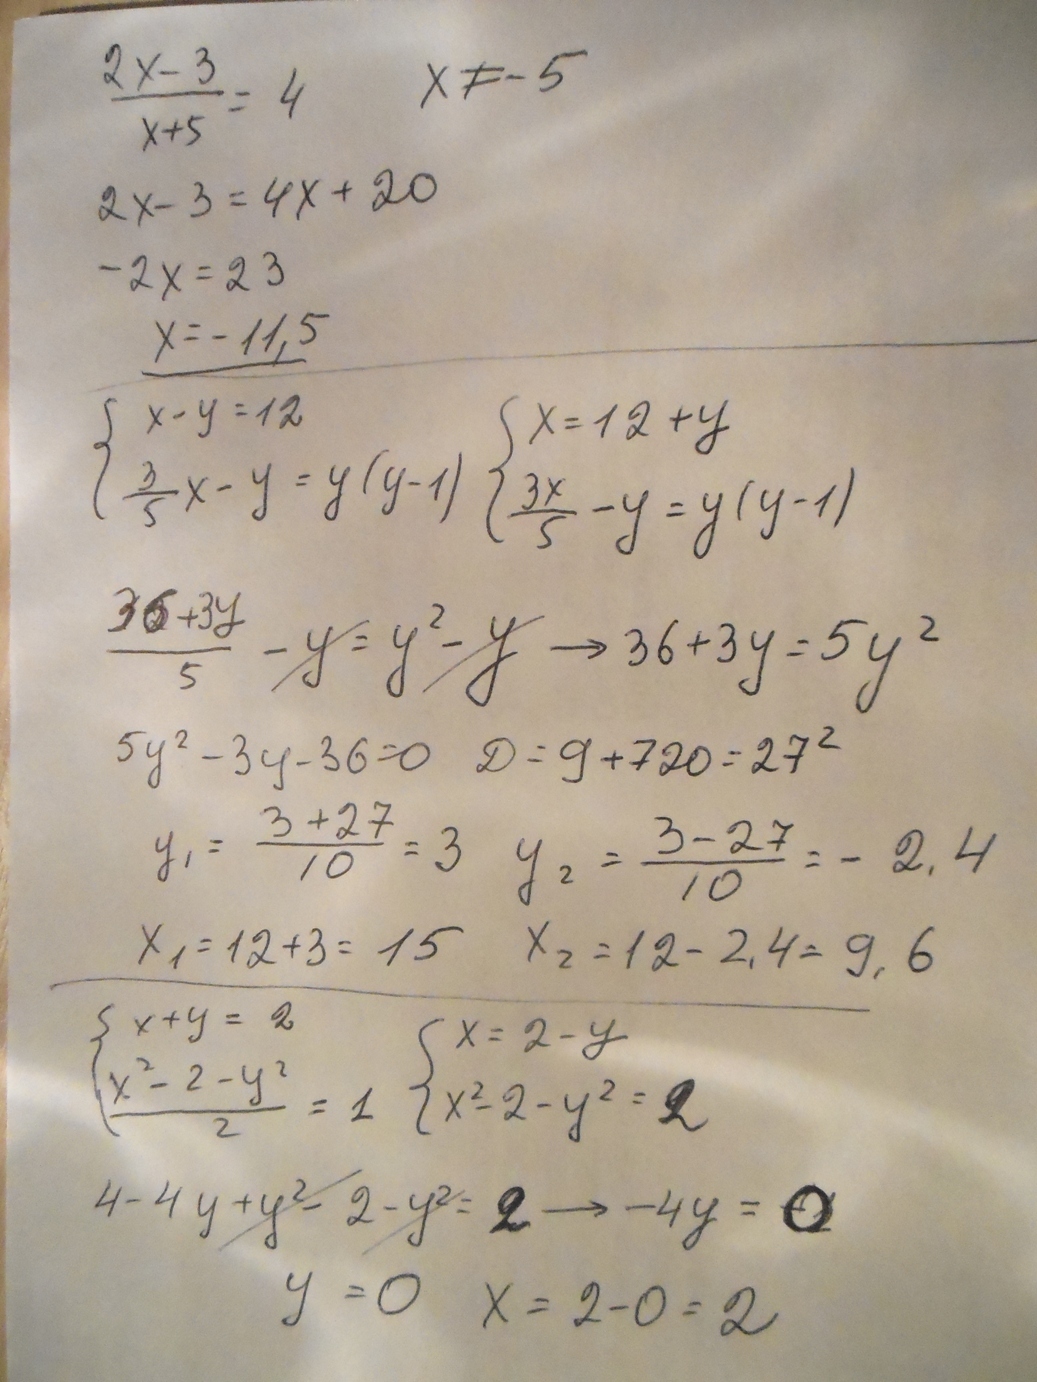 (2x-3)/(x+5) = 4    x ≠ -5
2x-3 = 4x+20
-2x = 23
x = -11,5
{ x-y = 12    { x = 12+y
{ 3/5 x - y = y(y-1)    { 3x/5 - y = y(y-1)
(36+3y)/5 - y = y² - y → 36+3y = 5y²
5y² - 3y - 36 = 0    D = 9+720 = 27²
y₁ = (3+27)/10 = 3    y₂ = (3-27)/10 = -2.4
x₁ = 12+3 = 15    x₂ = 12-2,4 = 9,6
{ x+y = 2    { x = 2-y
{ (x²-2-y²)/2 = 1    { x²-2-y² = 2
4-4y+y²-2-y² = 2 → -4y = 0
y = 0    x = 2-0 = 2